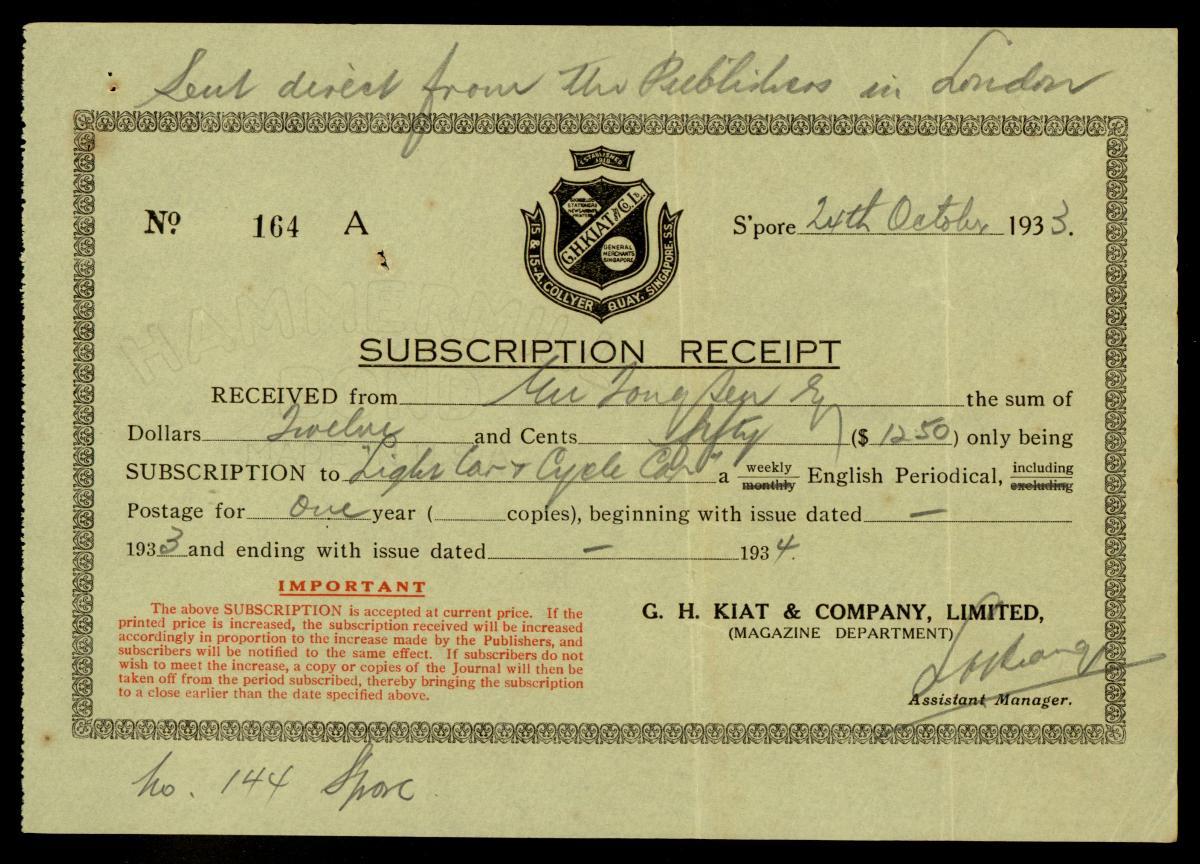 Sent direct from The Publishers in London
ESTABLISHED
1918
No 164 A
S'pore 24th October 1933.
G.H. KIAT & CO. LD.
GENERAL
MERCHANTS
SINGAPORE
15 & 15-A, COLLYER QUAY, SINGAPORE. S.S.
HAMMERMILL
SUBSCRIPTION RECEIPT
RECEIVED from the sum of
Dollars Twelve and Cents fifty ($ 12 50) only being
SUBSCRIPTION to Light Car & Cycle Car a weekly monthly English Periodical, including excluding
Postage for One year ( copies), beginning with issue dated —
1933 and ending with issue dated — 1934.
IMPORTANT
The above SUBSCRIPTION is accepted at current price. If the
printed price is increased, the subscription received will be increased
accordingly in proportion to the increase made by the Publishers, and
subscribers will be notified to the same effect. If subscribers do not
wish to meet the increase, a copy or copies of the Journal will then be
taken off from the period subscribed, thereby bringing the subscription
to a close earlier than the date specified above.
G. H. KIAT & COMPANY, LIMITED,
(MAGAZINE DEPARTMENT)
Assistant Manager.
No. 144 Spore